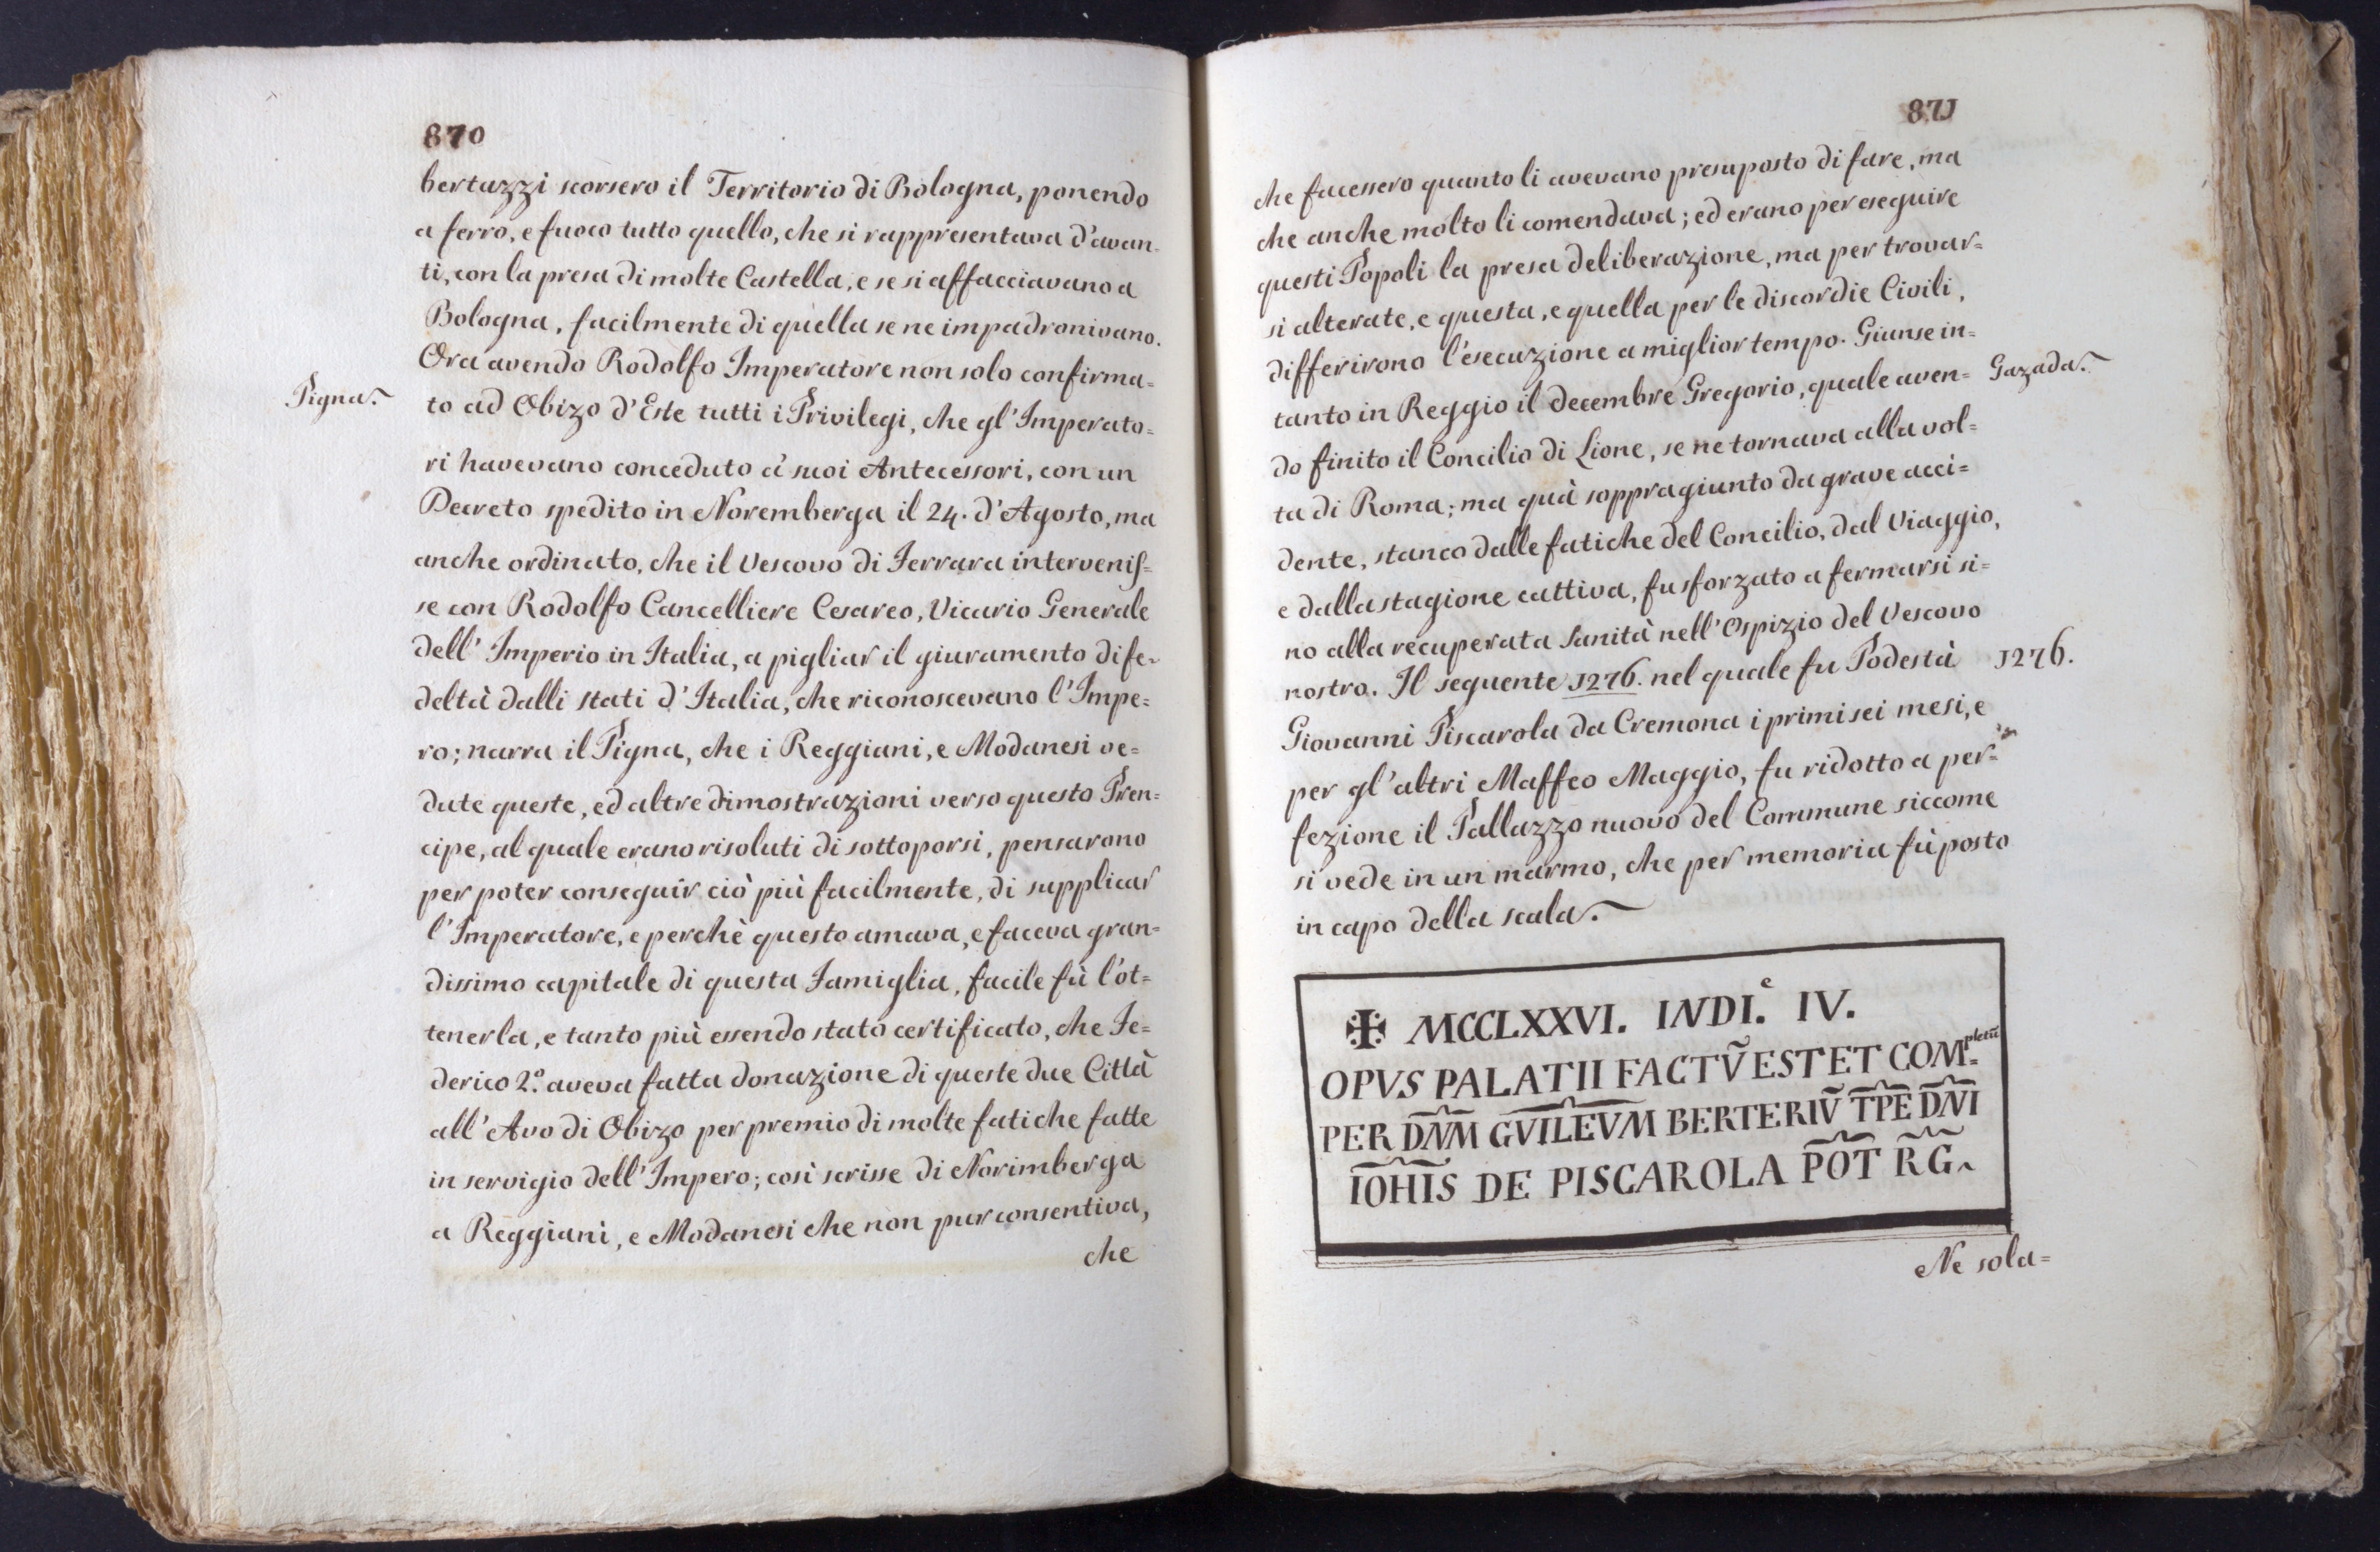 870
bertuzzi scorsero il Territorio di Bologna, ponendo
a ferro, e fuoco tutto quello, che si rappresentava d'avan-
ti, con la presa di molte Castella, e se si affacciavano a
Bologna, facilmente di quella se ne impadronivano.
Ora avendo Rodolfo Imperatore non solo confirma=
Pigna.
to ad Obizo d'Este tutti i Privilegi, che gl'Imperato=
ri havevano conceduto a' suoi Antecessori, con un
Decreto spedito in Noremberga il 24. d'Agosto, ma
anche ordinato, che il Vescovo di Ferrara intervenis=
se con Rodolfo Cancelliere Cesareo, Vicario Generale
dell' Imperio in Italia, a pigliar il giuramento di fe-
deltà dalli stati d'Italia, che riconoscevano l'Impe=
ro; narra il Pigna, che i Reggiani, e Modanesi ve=
dute queste, ed altre dimostrazioni verso questo Pren=
cipe, al quale erano risoluti di sottoporsi, pensarono
per poter conseguir ciò più facilmente, di supplicar
l'Imperatore, e perchè questo amava, e faceva gran=
dissimo capitale di questa Famiglia, facile fù l'ot=
tenerla, e tanto più essendo stato certificato, che Fe=
derico 2.º aveva fatta donazione di queste due Città
all'Avo di Obizo per premio di molte fatiche fatte
in servigio dell'Impero; così scrisse di Norimberga
a Reggiani, e Modanesi che non pur consentiva,
che
871
che facessero quanto li avevano presuposto di fare, ma
che anche molto li comendava; ed erano per eseguire
questi Popoli la presa deliberazione, ma per trovar=
si alterate, e questa, e quella per le discordie Civili,
differirono l'esecuzione a miglior tempo. Giunse in=
Gazada.
tanto in Reggio il decembre Gregorio, quale aven=
do finito il Concilio di Lione, se ne tornava alla vol=
ta di Roma; ma quà soppragiunto da grave acci=
dente, stanco dalle fatiche del Concilio, dal Viaggio,
e dalla stagione cattiva, fu sforzato a fermarsi si=
no alla recuperata Sanità nell'Ospizio del Vescovo
nostro. Il seguente 1276. nel quale fu Podestà
1276.
Giovanni Piscarola da Cremona i primi sei mesi, e
per gl'altri Maffeo Maggio, fu ridotto a per=
fezione il Pallazzo nuovo del Commune siccome
si vede in un marmo, che per memoria fù posto
in capo della scala.
✠ MCCLXXVI. INDI.e IV.
OPVS PALATII FACTV̄ EST ET COM=pletū
PER DN̄M GVILEVM BERTERIV̄ TP̄E DN̄I
IOHIS DE PISCAROLA POT RG.
Ne sola=